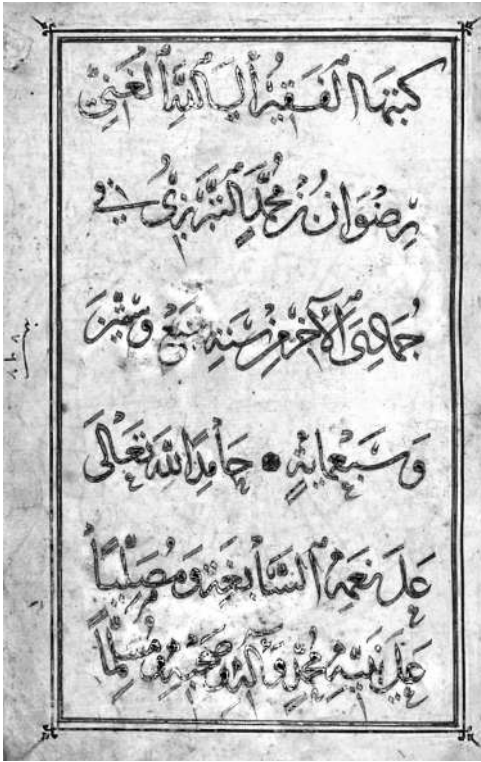 كتبها الفقير إلى الله الغني
رضوان بن محمد التبريزي في
جمادى الآخر من سنة سبع وستين
وسبعماية ● حامدا لله تعالى
على نعمه السابغة ومصليا
على نبيه محمد وآله وصحبه ومسلما